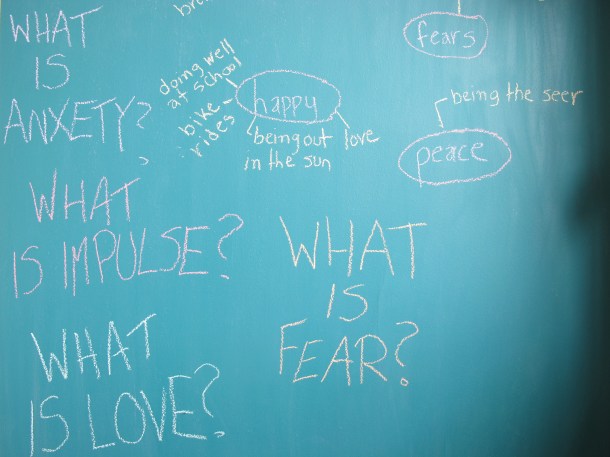 WHAT
IS
ANXETY?
WHAT
IS IMPULSE?
WHAT
IS LOVE?
doing well
at school
bike
rides
happy
being out
in the sun
love
fears
being the seer
peace
WHAT
IS
FEAR?